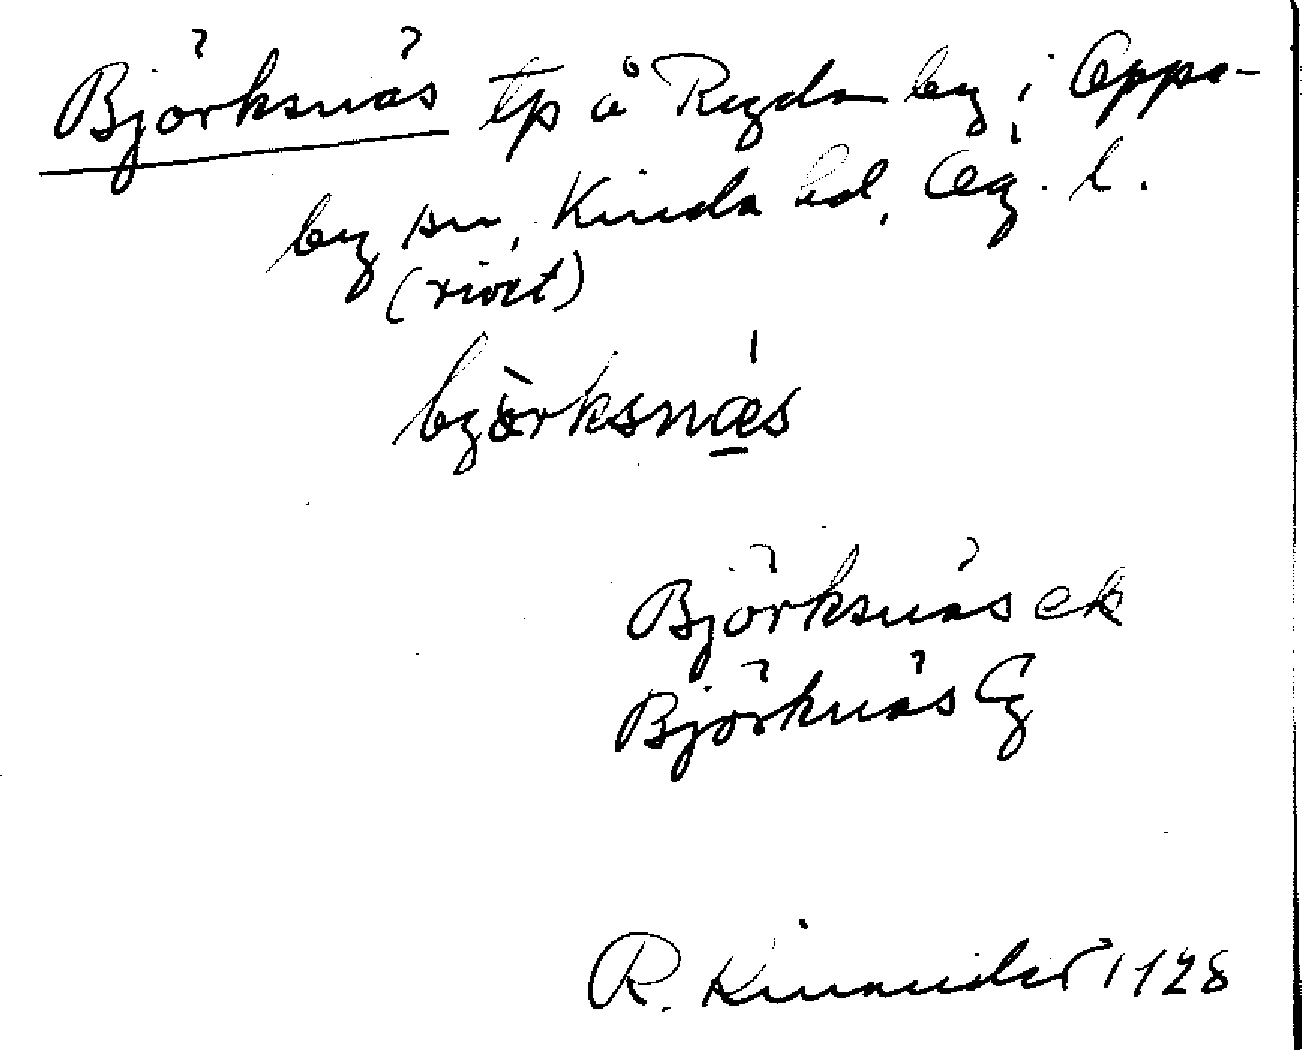 Björksnäs tp å Ryda by i Oppe-
by sn, Kinda hd, Ög. l.
(rivet)
bjòrksnæs
Björksnäs ek
Björknäs Cg
R. Kinander 1928